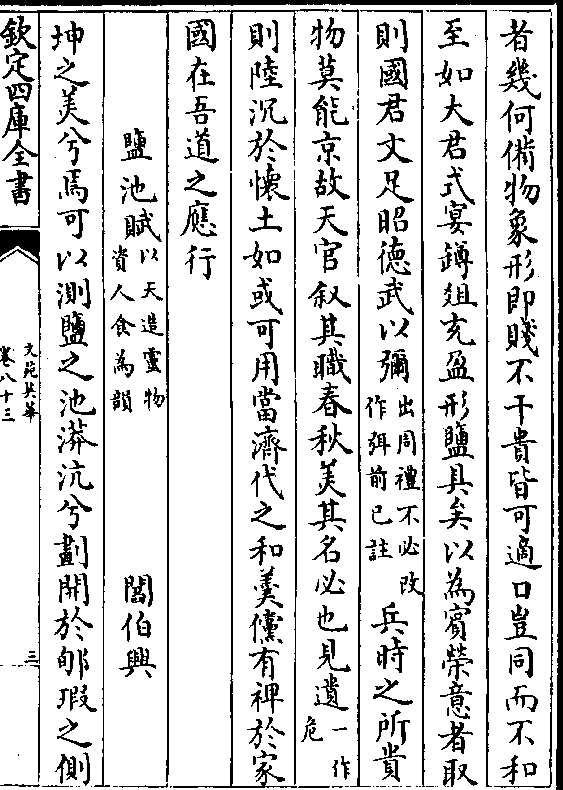 者幾何備物象形即賤不干貴皆可適口豈同而不和
至如大君式宴鐏俎充盈形鹽具矣以為賓榮意者取
則國君文足昭德武以彌出周禮不必改作弭前已註兵時之所貴
物莫能京故天官叙其職春秋美其名必也見遺一作危
則陸沉於懷土如或可用當濟代之和羮儻有裨於家
國在吾道之應行
鹽池賦以天造靈物資人食為韻 閻伯興
坤之美兮焉可以測鹽之池漭沆兮劃開於郇瑕之側
欽定四庫全書
文苑英華
卷八十三
三